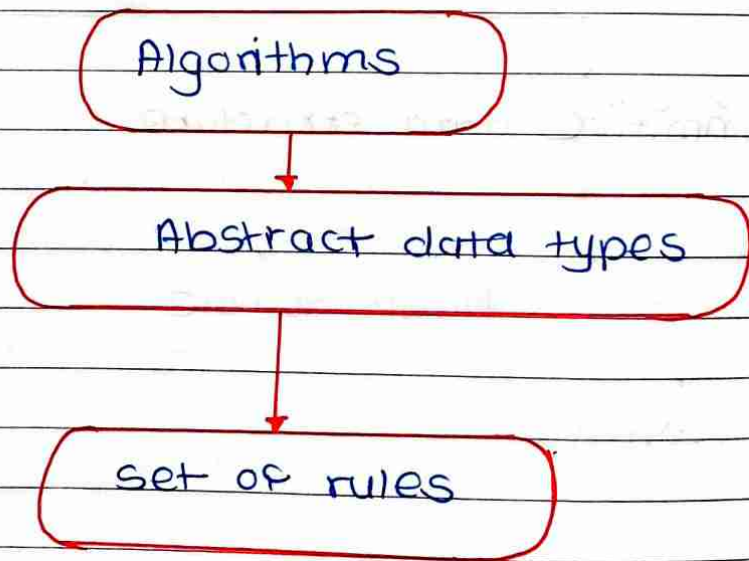 Algorithms
Abstract data types
set of rules